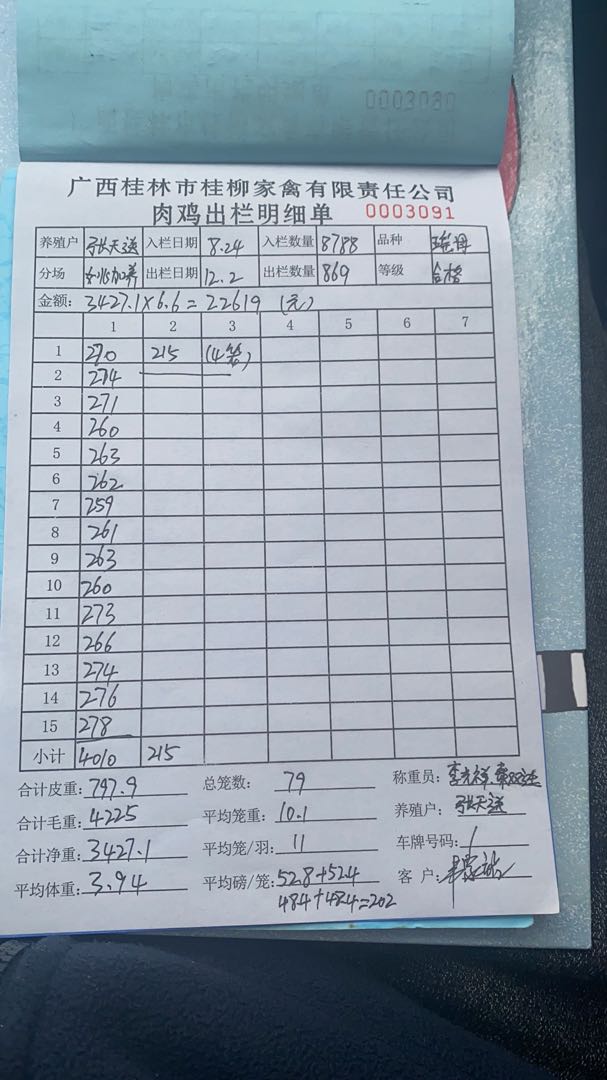 0003090
广西桂林市桂柳家禽有限责任公司
肉鸡出栏明细单 0003091
养殖户 张天送 入栏日期 8.24 入栏数量 8788 品种
分场 出栏日期 12.2 出栏数量 869 等级 合格
金额: 3427.1×6.6=22619 (元)
1 2 3 4 5 6 7
1 270 215 (4笼)
2 274
3 271
4 260
5 263
6 262
7 259
8 261
9 263
10 260
11 273
12 266
13 274
14 276
15 278
小计 4010 215
合计皮重: 797.9 总笼数: 79 称重员:
合计毛重: 4225 平均笼重: 10.1 养殖户: 张天送
合计净重: 3427.1 平均笼/羽: 11 车牌号码: /
平均体重: 3.94 平均磅/笼: 52.8+52.4 客 户:
48.4+48.4=202